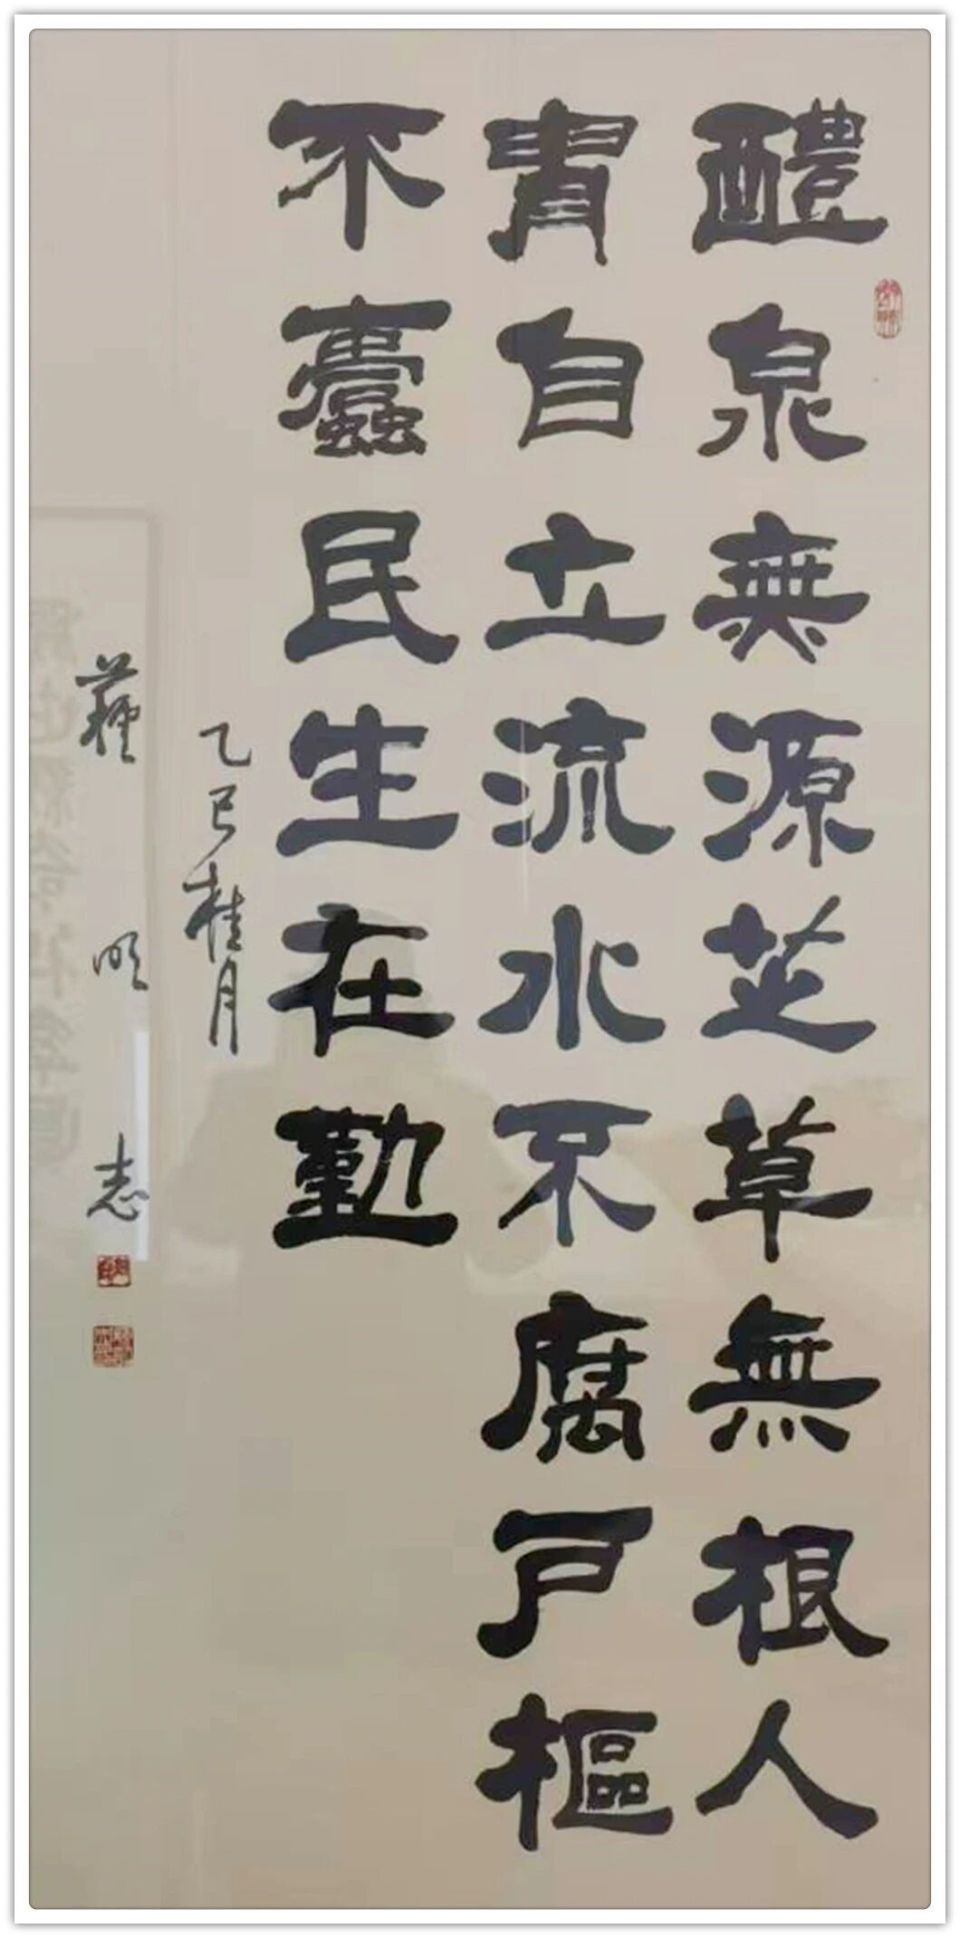 醴泉無源芝草無根人
胄自立流水不腐戶樞
不蠹民生在勤
乙巳桂月
明志